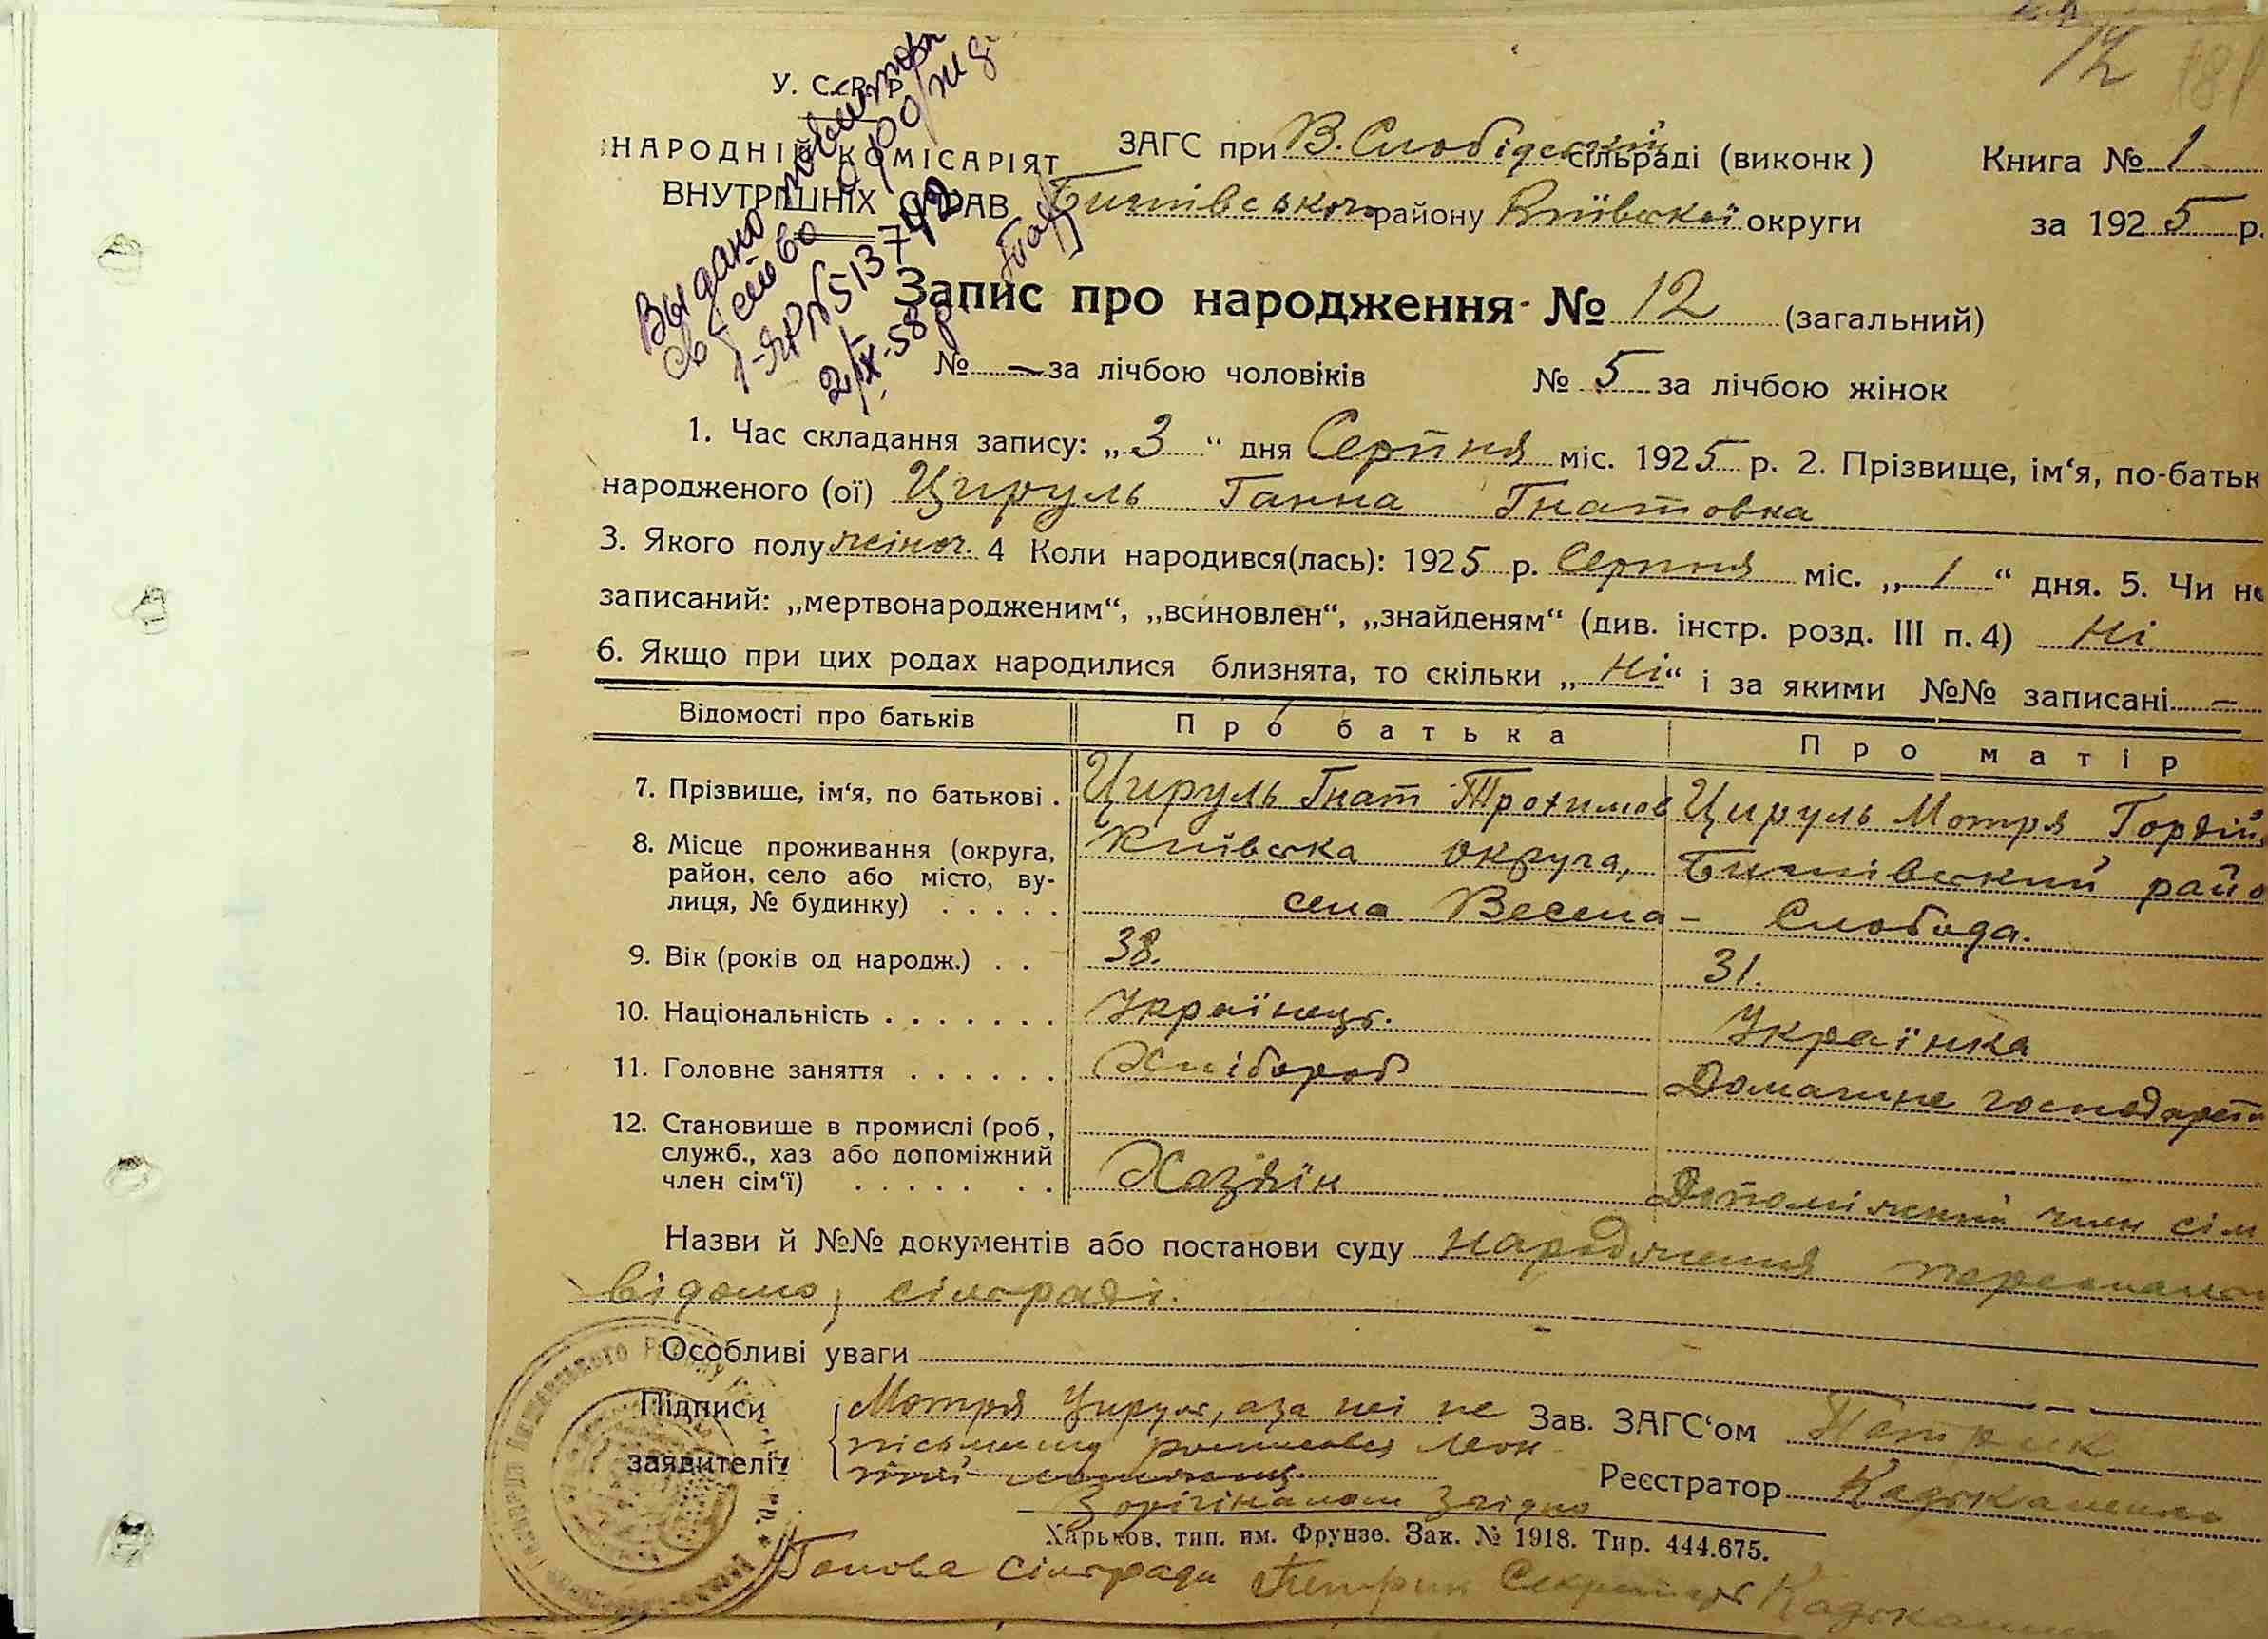 12 181
У. С. Р. Р.
НАРОДНІЙ КОМІСАРІЯТ
ВНУТРІШНІХ СПРАВ
Выдано повторн
свб во о рожд
І-ЯР № 513742
2/ІХ-58р
ЗАГС при В. Слобідській сільраді (виконк)
Бишівського району Київської округи
Книга № 1
за 1925 р.
Запис про народження № 12 (загальний)
№ — за лічбою чоловіків № 5 за лічбою жінок
1. Час складання запису: „3“ дня Серпня міс. 1925 р. 2. Прізвище, ім‘я, по-батьк
народженого (ої) Цируль Ганна Гнатовна
3. Якого полу жіноч. 4 Коли народився(лась): 1925 р. Серпня міс. „1“ дня. 5. Чи не
записаний: „мертвонародженим“, „всиновлен“, „знайденям“ (див. інстр. розд. III п. 4) Ні
6. Якщо при цих родах народилися близнята, то скільки „Ні“ і за якими №№ записані —
Відомості про батьків Про батька Про матір
7. Прізвище, ім‘я, по батькові . Цируль Гнат Трохимов Цируль Мотря Гордій
8. Місце проживання (округа, Київська округа, Бишівський райо
район, село або місто, ву-
лиця, № будинку) . . . . . села Весела - Слобода.
9. Вік (років од народж.) . . 38. 31.
10. Національність . . . . . . . Українець. Українка
11. Головне заняття . . . . . . Хлібороб Домашне господарст
12. Становище в промислі (роб,
служб., хаз або допоміжний
член сім‘ї) . . . . . . . Хазяїн Допоміжний член сім
Назви й №№ документів або постанови суду народження персонально
відомо, сільраді.
Особливі уваги
Підписи
заявителів
Мотря Цируль, а за неї не
письменну росписався Леон
Зав. ЗАГС‘ом Петрик
Реєстратор
З орігіналом згідно
Харьков. тип. им. Фрунзе. Зак. № 1918. Тир. 444.675.
Голова сільради Петрик Секретар